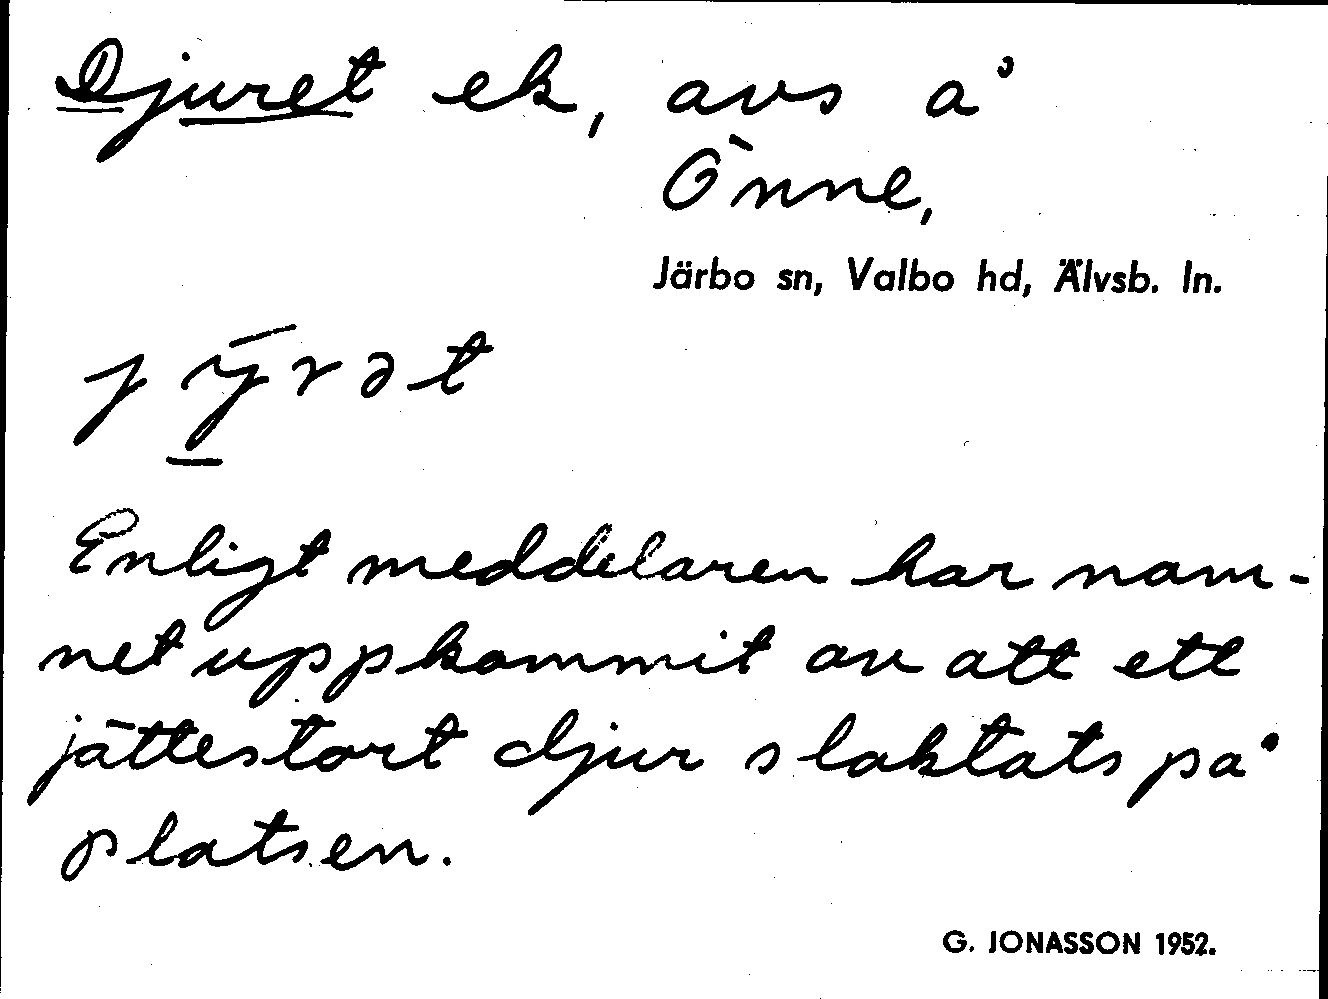 Djuret ek, avs å
Önne,
Järbo sn, Valbo hd, Älvsb. ln.
jȳrət
Enligt meddelaren har nam-
net uppkommit av att ett
jättestort djur slaktats på
platsen.
G. JONASSON 1952.